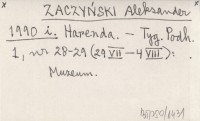 ZACZYŃSKI Aleksander
1990 i. Harenda. - Tyg. Podh.
1, nr 28-29 (29 VII - 4 VIII):
Muzeum.